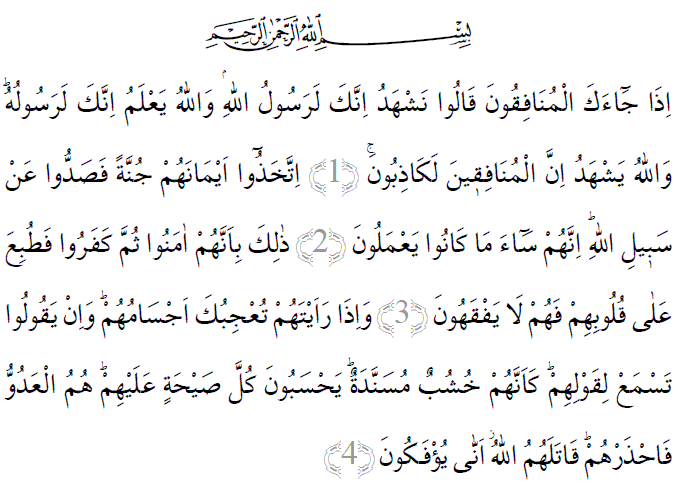 بِسْمِ اللّٰهِ الرَّحْمٰنِ الرَّحِيمِ
اِذَا جَٓاءَكَ الْمُنَافِقُونَ قَالُوا نَشْهَدُ اِنَّكَ لَرَسُولُ اللّٰهِۢ وَاللّٰهُ يَعْلَمُ اِنَّكَ لَرَسُولُهُۜ
وَاللّٰهُ يَشْهَدُ اِنَّ الْمُنَافِق۪ينَ لَكَاذِبُونَۚ ﴿1﴾ اِتَّخَذُٓوا اَيْمَانَهُمْ جُنَّةً فَصَدُّوا عَنْ
سَب۪يلِ اللّٰهِۜ اِنَّهُمْ سَٓاءَ مَا كَانُوا يَعْمَلُونَ ﴿2﴾ ذٰلِكَ بِاَنَّهُمْ اٰمَنُوا ثُمَّ كَفَرُوا فَطُبِعَ
عَلٰى قُلُوبِهِمْ فَهُمْ لَا يَفْقَهُونَ ﴿3﴾ وَاِذَا رَاَيْتَهُمْ تُعْجِبُكَ اَجْسَامُهُمْۜ وَاِنْ يَقُولُوا
تَسْمَعْ لِقَوْلِهِمْۜ كَاَنَّهُمْ خُشُبٌ مُسَنَّدَةٌۜ يَحْسَبُونَ كُلَّ صَيْحَةٍ عَلَيْهِمْۜ هُمُ الْعَدُوُّ
فَاحْذَرْهُمْۜ قَاتَلَهُمُ اللّٰهُۘ اَنّٰى يُؤْفَكُونَ ﴿4﴾